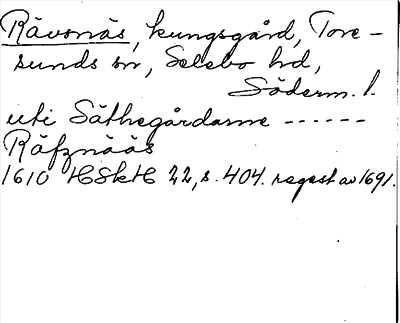 Rävsnäs, kungsgård, Tore-
sunds sn, Selebo hd,
Söderm. l.
uti Säthegårdarne ------
Räfznääs
1610 HSkH 22, s. 404. regest av 1691.